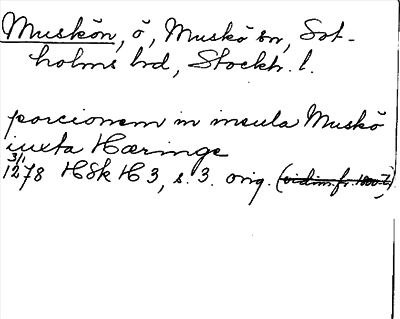 Muskön, ö, Muskö sn, Sot-
holms hd, Stockh. l.
porcionem in insula Muskö
iuxta Hæringe
3/1
1278 HSk H 3, s. 3. orig. (vidim. fr. 1300-t.)